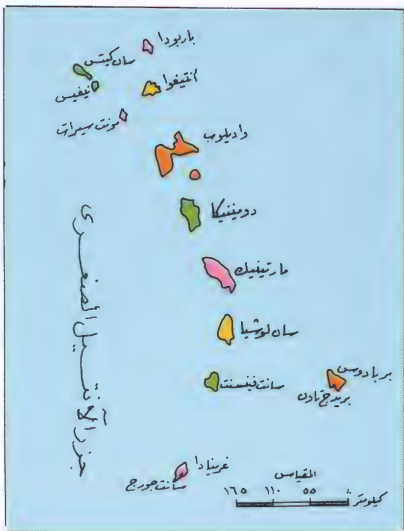 باربودا
سان كيتس
نيفيس
انتيغوا
مونت سيرات
واديلوب
دومينيكا
مارتينيك
سان لوشيا
سانت فينسنت
بربادوس
بريدج تاون
غرينادا
سانت جورج
جزر الأنتيل الصغرى
المقياس
١٦٥ ١١٠ ٥٥ ٠
كيلومتر